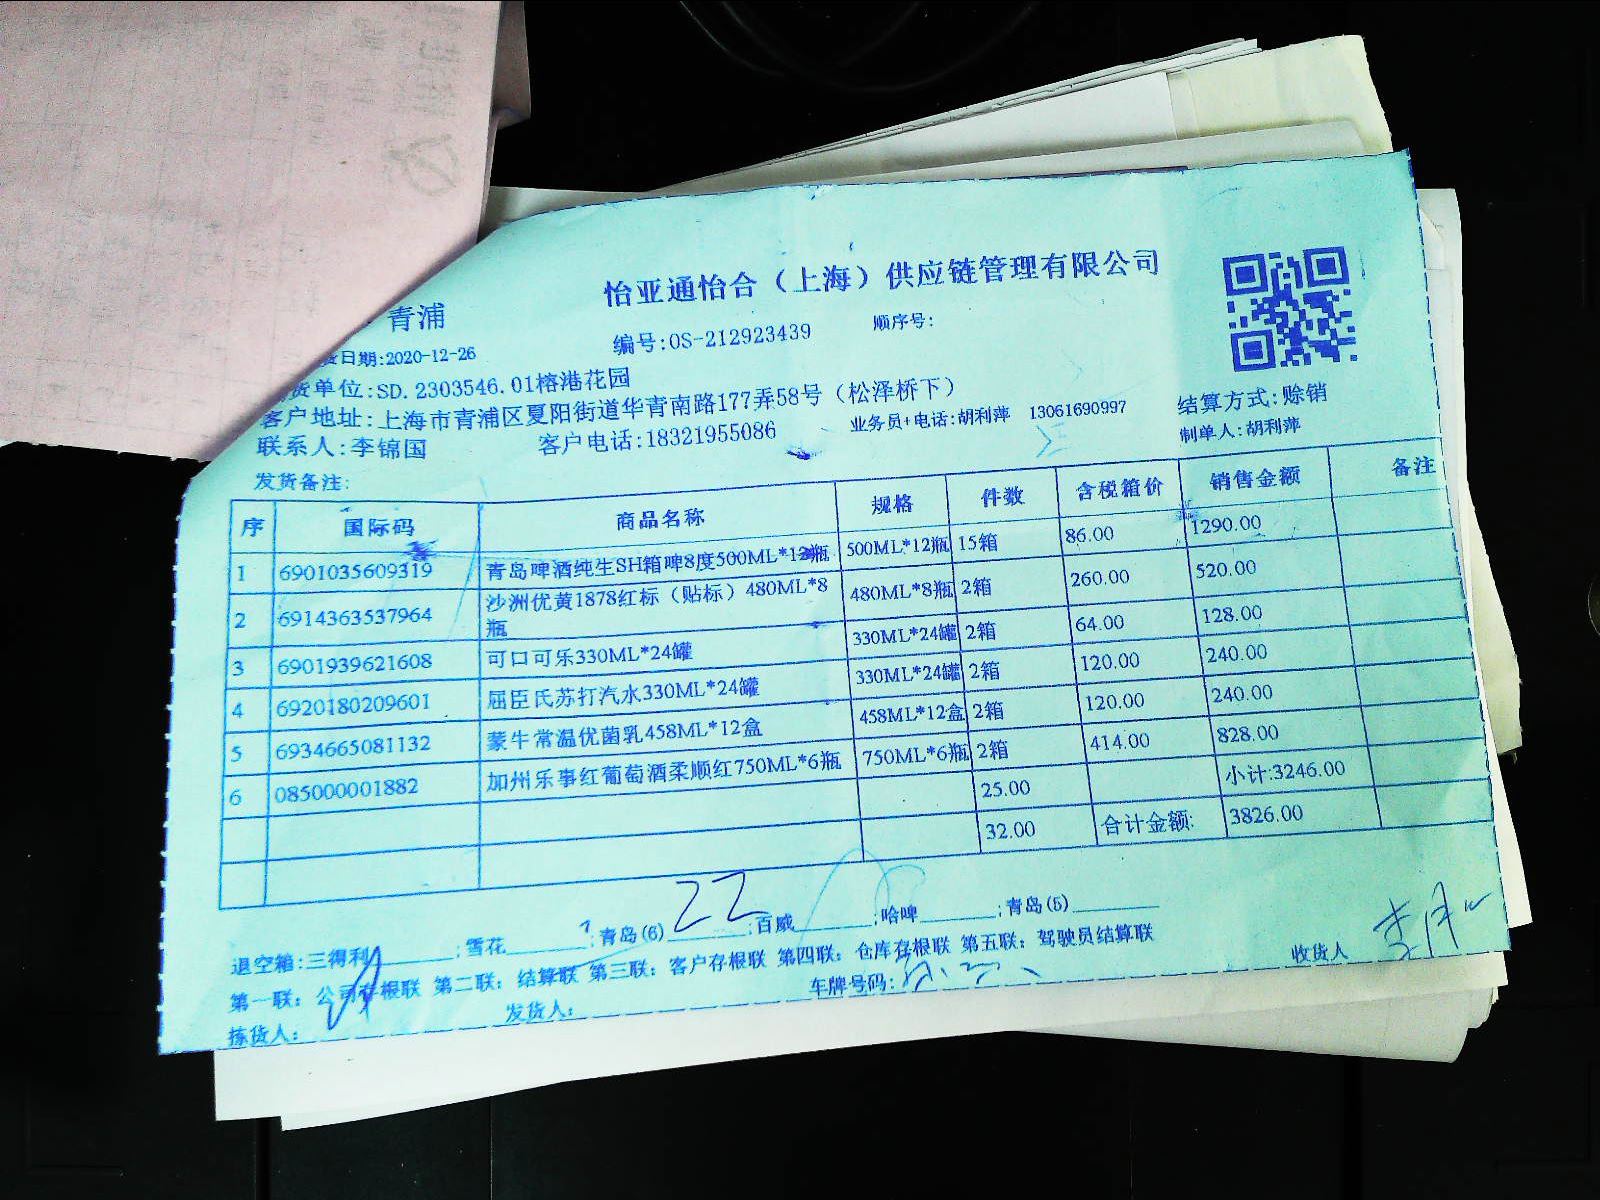 怡亚通怡合（上海）供应链管理有限公司
青浦
编号:OS-212923439 顺序号:
日期:2020-12-26
货单位:SD.2303546.01榕港花园
客户地址:上海市青浦区夏阳街道华青南路177弄58号（松泽桥下）
业务员+电话:胡利萍 13061690997 结算方式:赊销
联系人:李锦国 客户电话:18321955086 制单人:胡利萍
发货备注:
序 国际码 商品名称 规格 件数 含税箱价 销售金额 备注
1 6901035609319 青岛啤酒纯生SH箱啤8度500ML*12瓶 500ML*12瓶 15箱 86.00 1290.00
2 6914363537964 沙洲优黄1878红标（贴标）480ML*8瓶 480ML*8瓶 2箱 260.00 520.00
3 6901939621608 可口可乐330ML*24罐 330ML*24罐 2箱 64.00 128.00
4 6920180209601 屈臣氏苏打汽水330ML*24罐 330ML*24罐 2箱 120.00 240.00
5 6934665081132 蒙牛常温优菌乳458ML*12盒 458ML*12盒 2箱 120.00 240.00
6 085000001882 加州乐事红葡萄酒柔顺红750ML*6瓶 750ML*6瓶 2箱 414.00 828.00
25.00 小计:3246.00
32.00 合计金额: 3826.00
退空箱:三得利______;雪花______;青岛(6) 22;百威______;哈啤______;青岛(5)______
第一联：公司存根联 第二联：结算联 第三联：客户存根联 第四联：仓库存根联 第五联：驾驶员结算联
拣货人: 发货人: 车牌号码: 收货人